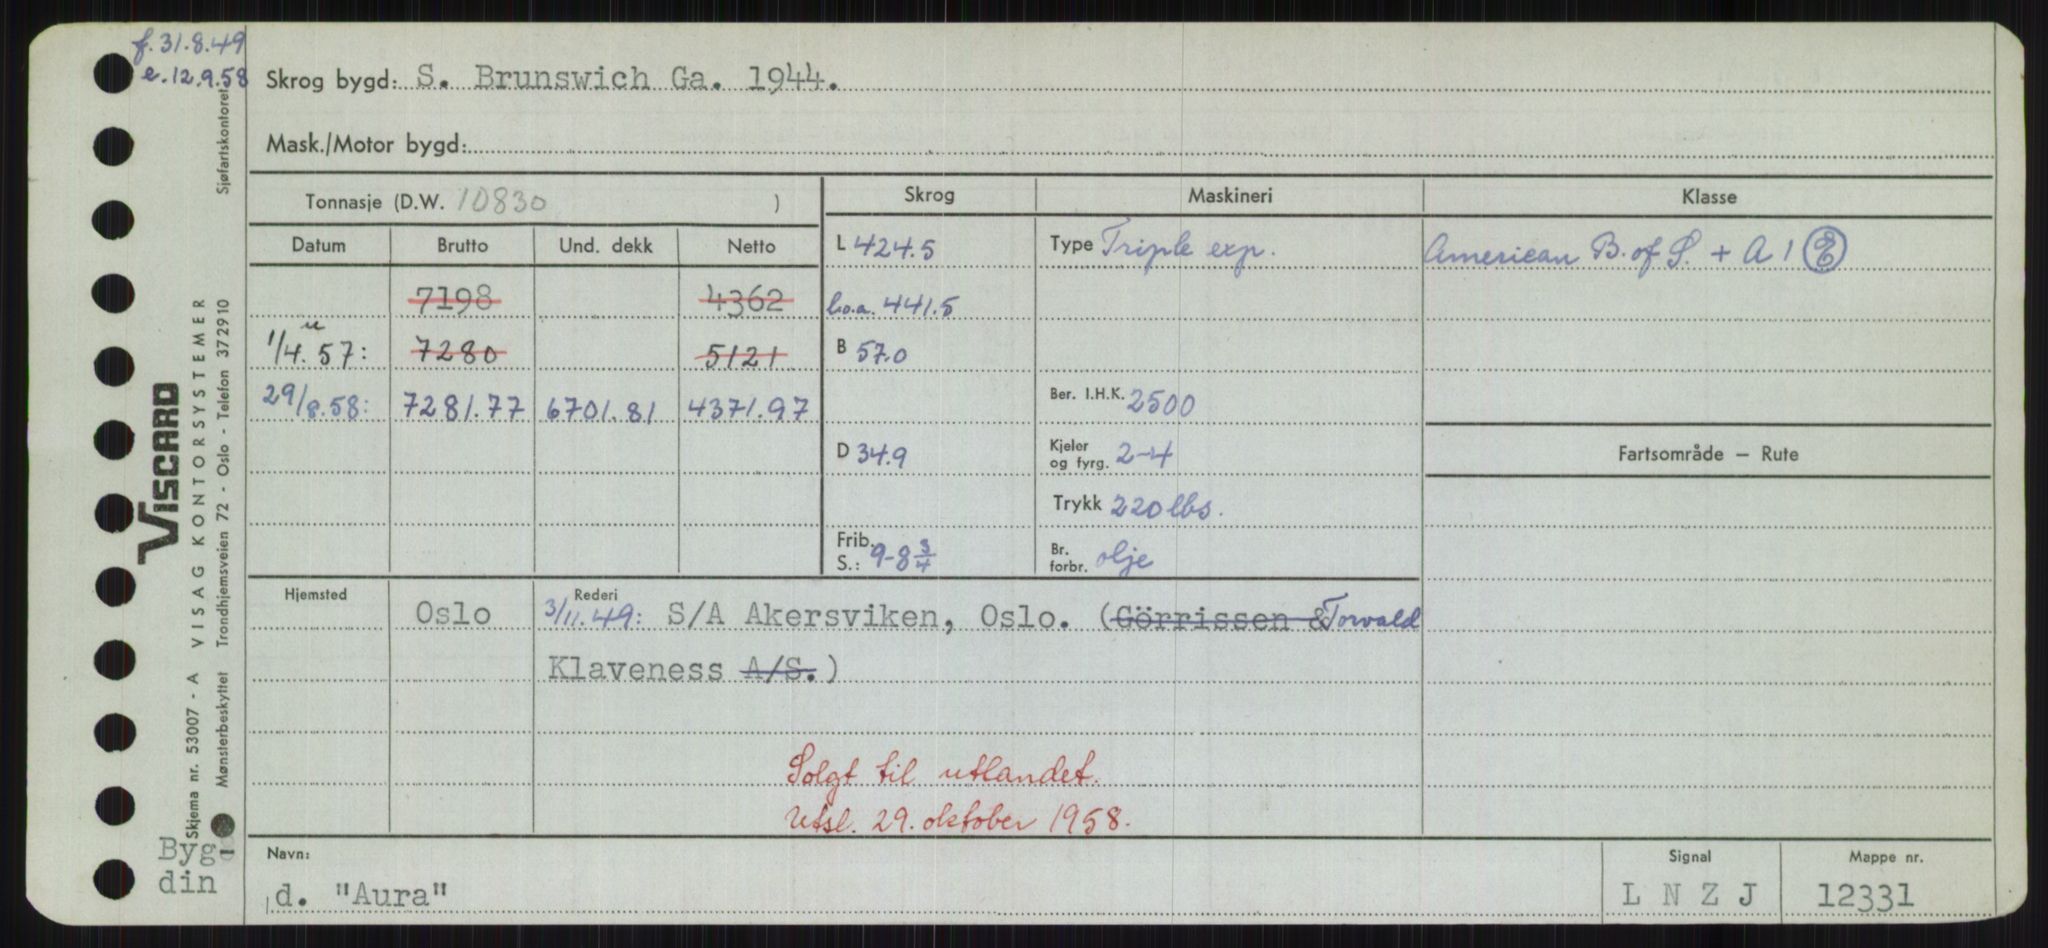 f. 31.8.49
e. 12.9.58
Skrog bygd: S. Brunswich Ga. 1944.
Mask./Motor bygd:
Tonnasje (D.W. 10830 )
Datum Brutto Und. dekk Netto
7198 4362
u
1/4.57: 7280 5121
29/8.58: 7281.77 6701.81 4371.97
Skrog
L 424.5
l.o.a. 441.5
B 57.0
D 34.9
Frib.
S.: 9-8 3/4
Maskineri
Type Triple exp.
Ber. I.H.K. 2500
Kjeler
og fyrg. 2-4
Trykk 220 lbs.
Br.
forbr. olje
Klasse
American B. of S. + A 1 (E)
Fartsområde – Rute
Hjemsted
Oslo
Rederi
3/11.49: S/A Akersviken, Oslo. (Görrissen & Torvald
Klaveness A/S.)
Solgt til utlandet.
Utsl. 29. oktober 1958.
Navn:
d. "Aura"
Signal
L N Z J
Mappe nr.
12331
VISCARD
VISAG KONTORSYSTEMER
Skjema nr. 53007 - A
Mønsterbeskyttet Trondhjemsveien 72 - Oslo - Telefon 372910 Sjøfartskontoret
Byg
din